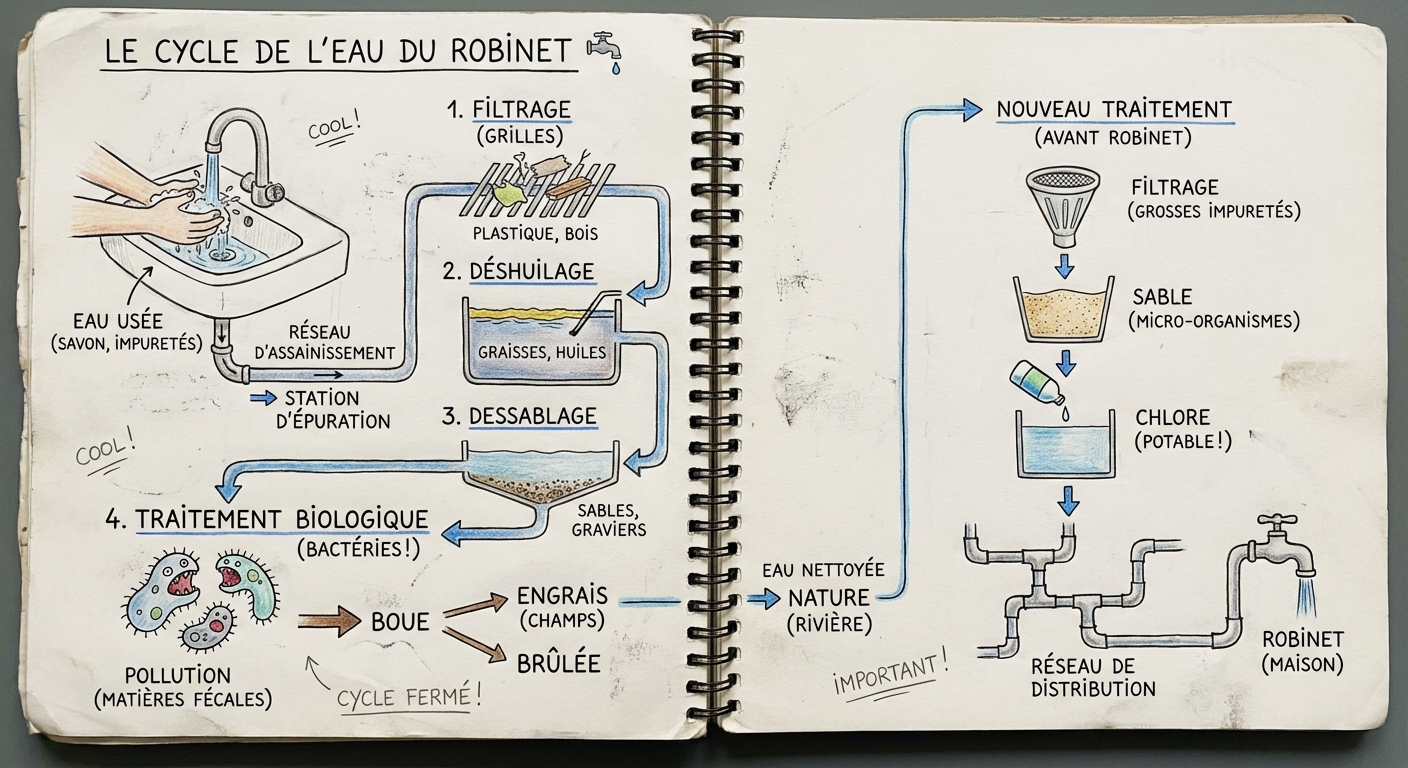 LE CYCLE DE L'EAU DU ROBINET
COOL!
EAU USÉE
(SAVON, IMPURETÉS)
RÉSEAU
D'ASSAINISSEMENT
STATION
D'ÉPURATION
COOL!
1. FILTRAGE
(GRILLES)
PLASTIQUE, BOIS
2. DÉSHUILAGE
GRAISSES, HUILES
3. DESSABLAGE
SABLES,
GRAVIERS
4. TRAITEMENT BIOLOGIQUE
(BACTÉRIES!)
POLLUTION
(MATIÈRES FÉCALES)
BOUE
ENGRAIS
(CHAMPS)
BRÛLÉE
CYCLE FERMÉ!
EAU NETTOYÉE
NATURE
(RIVIÈRE)
IMPORTANT!
NOUVEAU TRAITEMENT
(AVANT ROBINET)
FILTRAGE
(GROSSES IMPURETÉS)
SABLE
(MICRO-ORGANISMES)
CHLORE
(POTABLE!)
RÉSEAU DE
DISTRIBUTION
ROBINET
(MAISON)